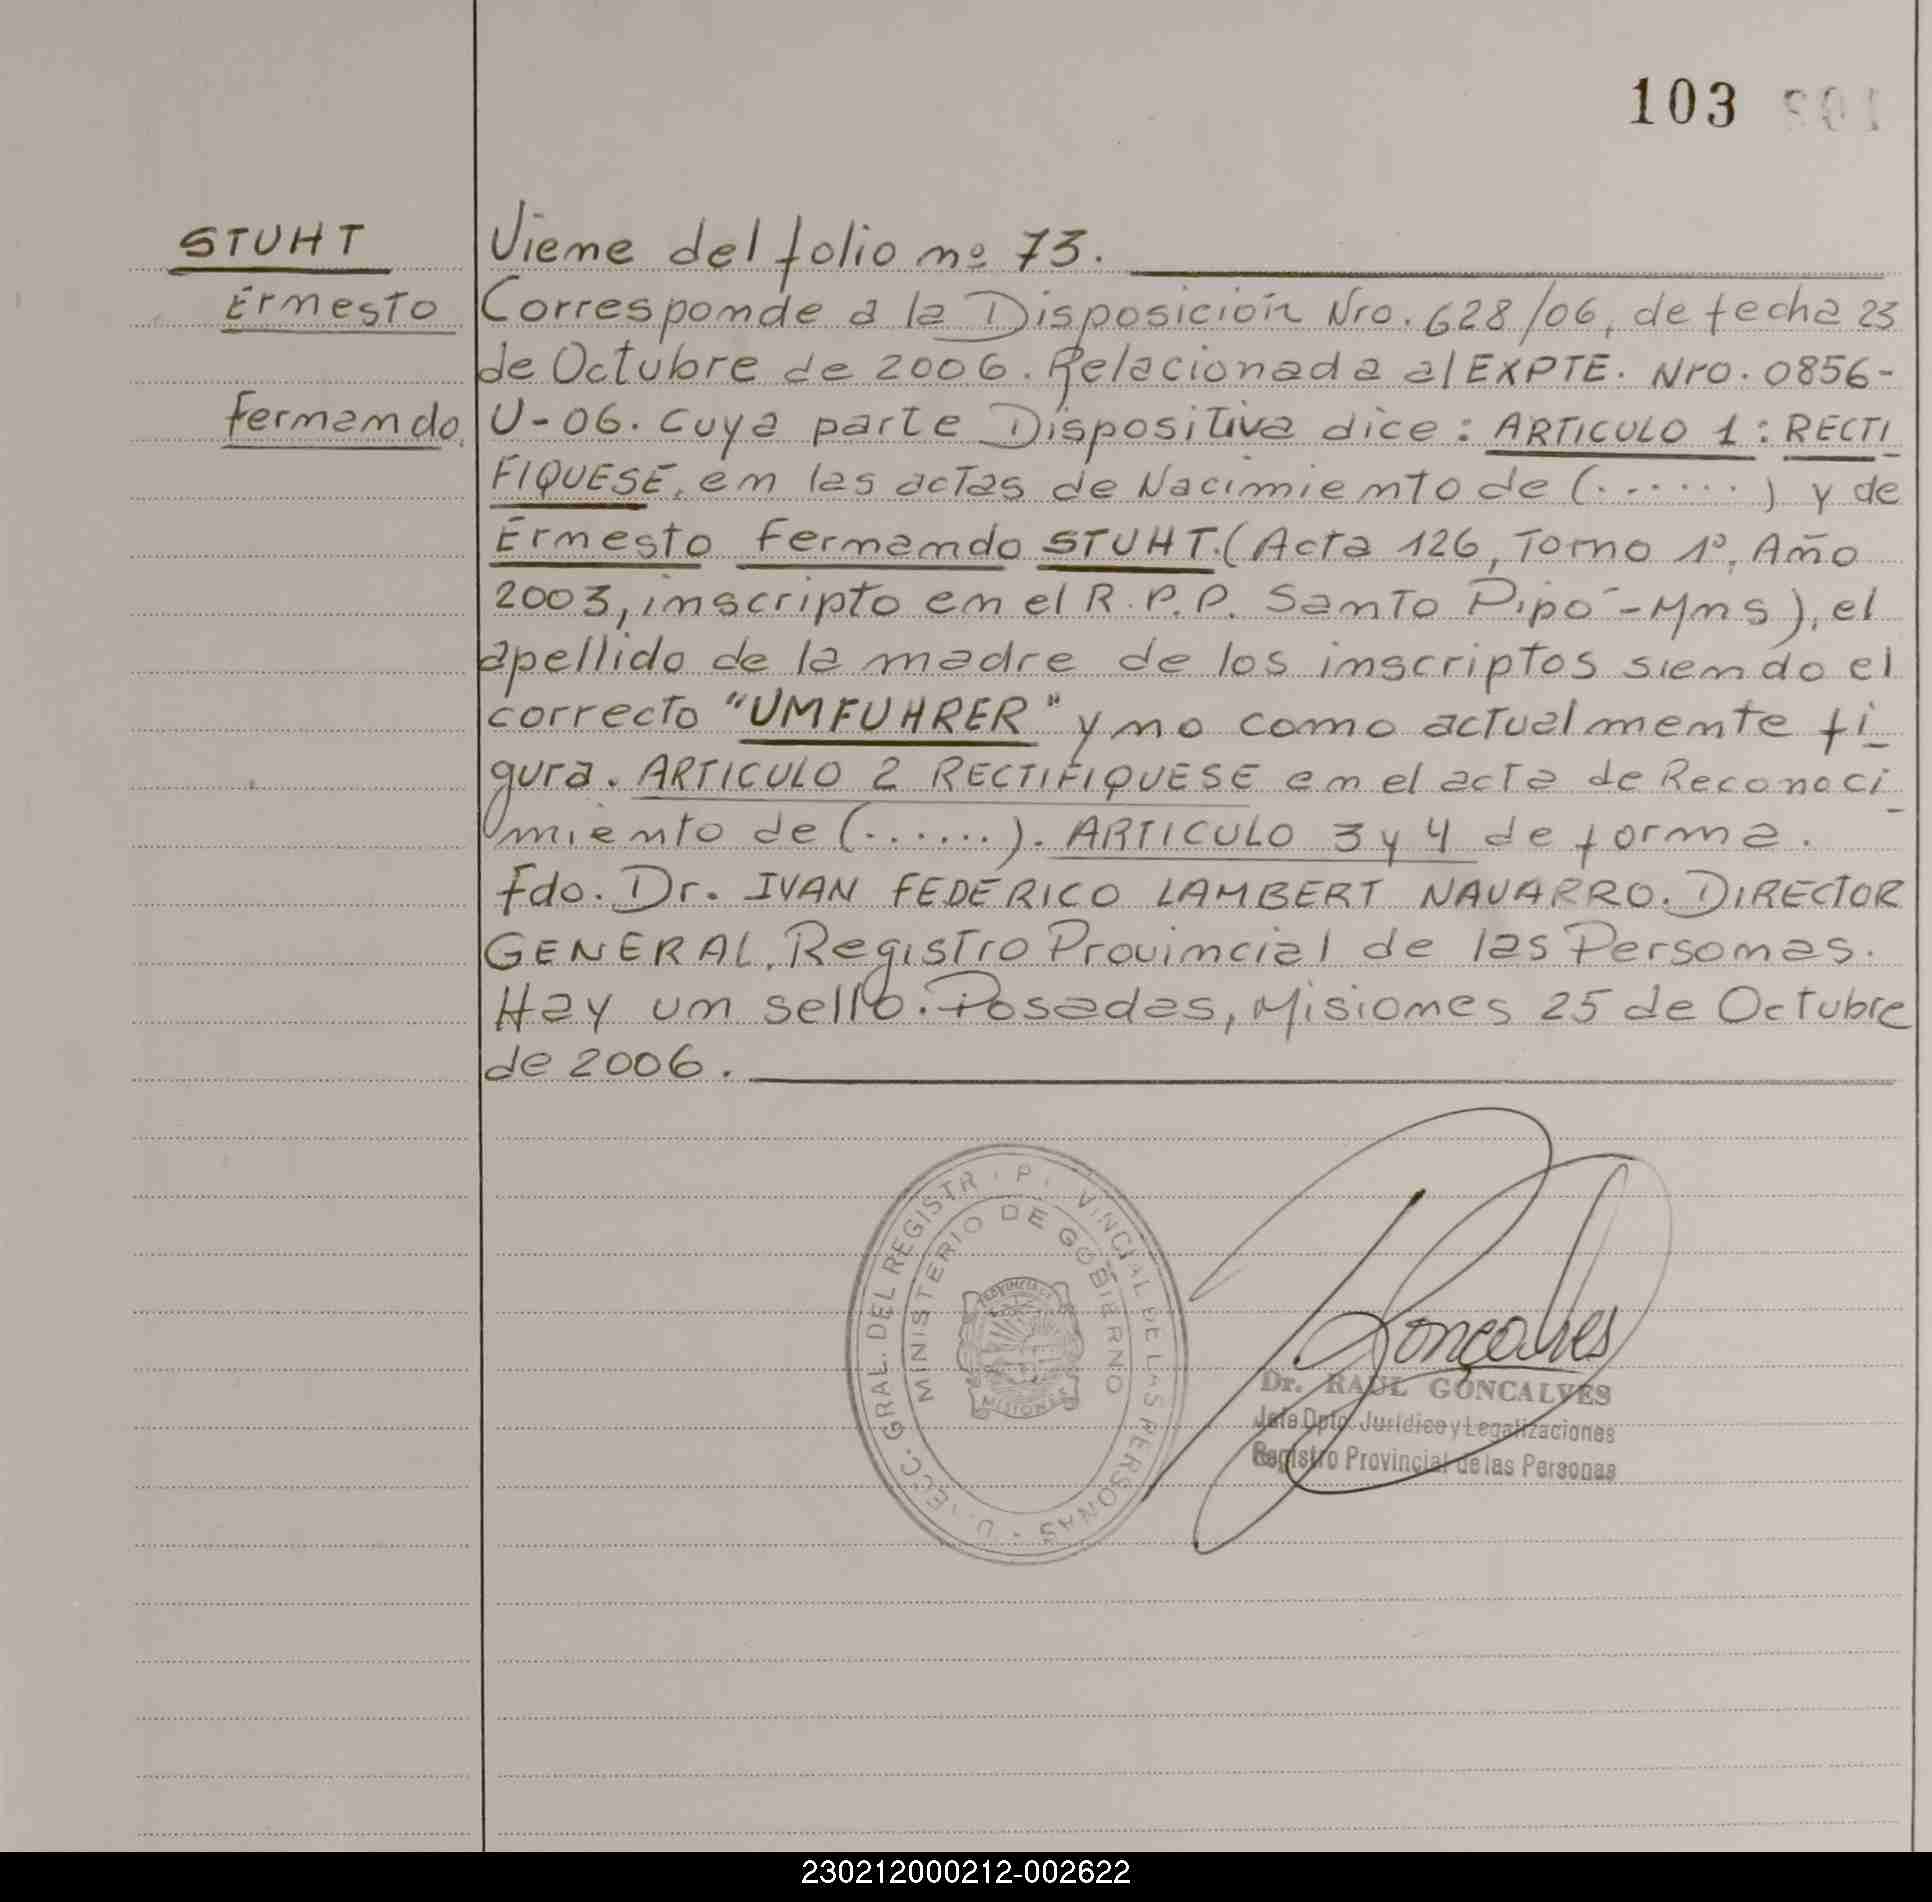 103
STUHT
Ernesto
Fernando.
Viene del folio nº 73.
Corresponde a la Disposición Nro. 628/06, de fecha 23
de Octubre de 2006. Relacionada al EXPTE. Nro. 0856-
U-06. Cuya parte Dispositiva dice: ARTICULO 1: RECTI
FIQUESE, en las actas de Nacimiento de (.......) y de
Ernesto Fernando STUHT. (Acta 126, Tomo 1º, Año
2003, inscripto en el R.P.P. Santo Pipó-Mns), el
apellido de la madre de los inscriptos siendo el
correcto "UMFUHRER" y no como actualmente fi_
gura. ARTICULO 2 RECTIFIQUESE en el acta de Reconoci_
miento de (......). ARTICULO 3 y 4 de forma.
Fdo. Dr. IVAN FEDERICO LAMBERT NAVARRO. DIRECTOR
GENERAL, Registro Provincial de las Personas.
Hay un sello. Posadas, Misiones 25 de Octubre
de 2006.
GRAL. DEL REGISTR VINCIAL DE LAS PERSONAS
MINISTERIO DE GOBIERNO
PROVINCIA DE
MISIONES
Gonçalves
Dr. RAUL GONCALVES
Jefe Dpto. Jurídico y Legalizaciones
Registro Provincial de las Personas
230212000212-002622